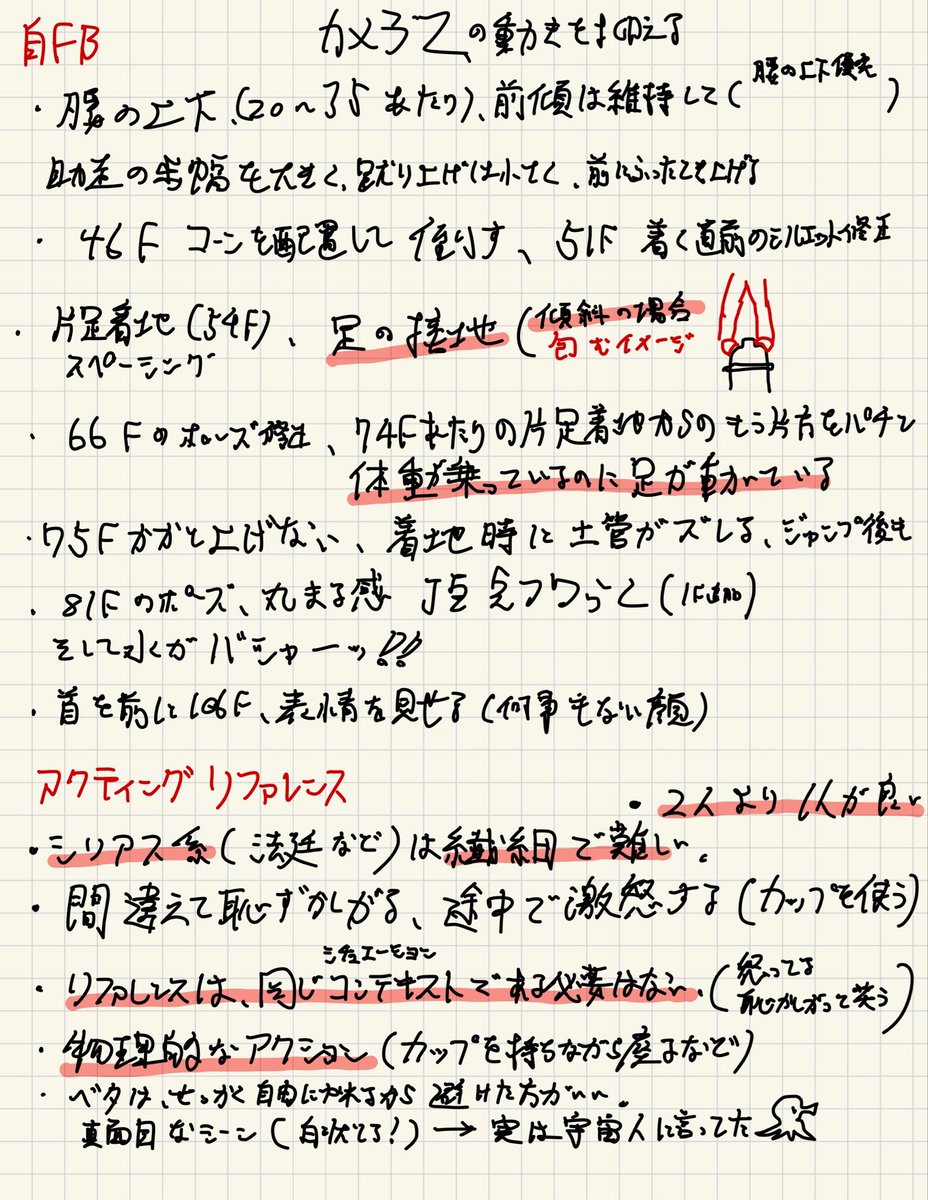 自FB
カメラの動きを抑える
・腰の上下(20〜35あたり)、前傾は維持して(腰の上下優先)
助走の歩幅を大きく、蹴り上げは小さく、前にふったても上げる
・46F コーンを配置して 、51F 着く直前のシルエット修正
・片足着地(54F)、足の接地(傾斜の場合
スペーシング
包むイメージ
・66Fのポーズ修正、74Fあたりの片足着地からのもう片方をパチン
体重が乗っているのに足が動いている
・75Fかかと上げない、着地時に土管がズレる、ジャンプ後も
・81Fのポーズ、丸まる感 頂点フワっと(1F追加)
そして水がバシャーッ!!
・首を前に106F、表情を見せる(何事もない顔)
アクティングリファレンス
・2人より1人が良い
・シリアス系(法廷など)は繊細で難しい。
・間違えて恥ずかしがる、途中で激怒する(カップを使う)
シチュエーション
・リファレンスは、同じコンテキストである必要はない。(怒ってる
恥ずかしがって笑う)
・物理的なアクション(カップを持ちながら座るなど)
・ベタは、せっかく自由に作れるから避けた方がいい。
真面目なシーン(白状しろ!)→実は宇宙人に言ってた